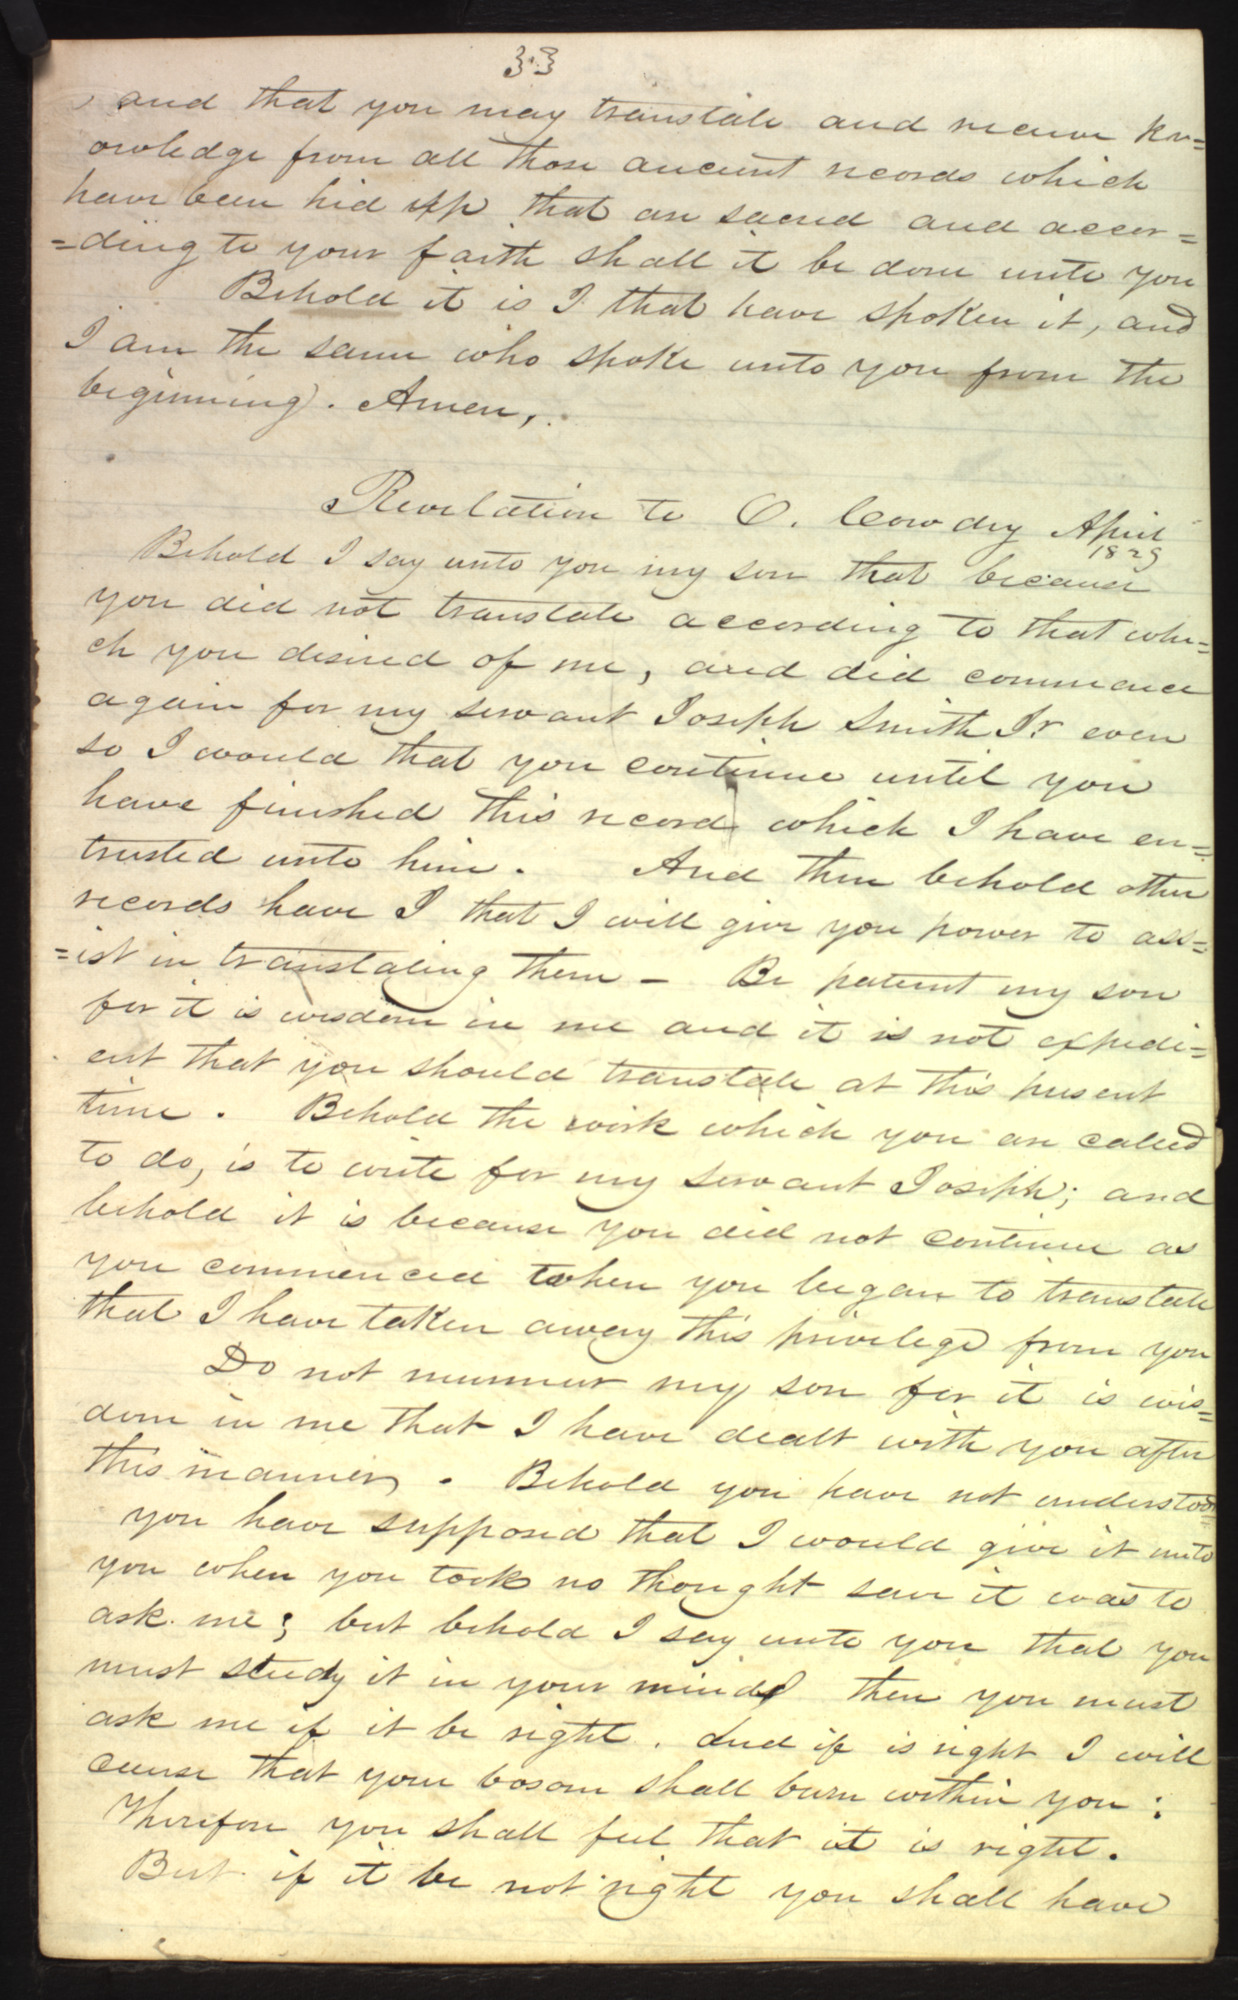 33
and that you may translate and receive kn=
owledge from all those ancient records which
have been hid up that are sacred and accor=
=ding to your faith shall it be done unto you
Behold it is I that have spoken it, and
I am the same who spoke unto you from the
beginning. Amen,.
Revelation to O. Cowdry April
1829
Behold I say unto you my son that because
you did not translate according to that whi=
ch you desired of me, and did commence
again for my servant Joseph Smith Jr even
so I would that you continue until you
have finished this record which I have en=
trusted unto him. And then behold other
records have I that I will give you power to ass=
=ist in translating them – Be patient my son
for it is wisdom in me and it is not expedi=
ent that you should translate at this present
time. Behold the work which you are called
to do, is to write for my servant Joseph; and
behold it is because you did not continue as
you commenced when you began to translate
that I have taken away this privilege from you
Do not murmur my son for it is wis=
dom in me that I have dealt with you after
this manner. Behold you have not understood
you have supposed that I would give it unto
you when you took no thought save it was to
ask me; but behold I say unto you that you
must study it in your mind then you must
ask me if it be right. And if is right I will
cause that your bosom shall burn within you:
Therefore you shall feel that it is right.
But if it be not right you shall have